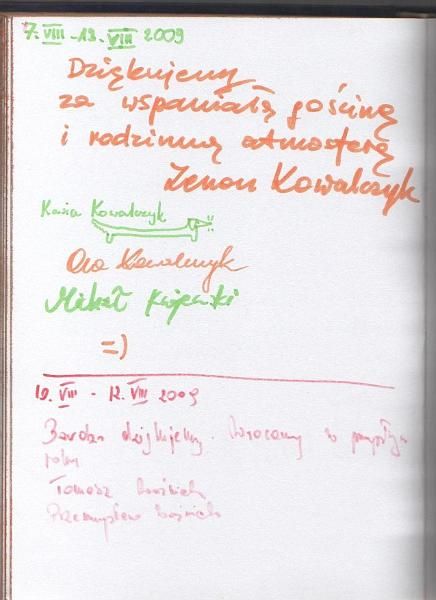 7. VIII - 13. VIII 2009
Dziękujemy
za wspaniałą gościnę
i rodzinną atmosferę
Zenon Kowalczyk
Kasia Kowalczyk
Ola Kowalczyk
Michał
=)
10. VIII - 12. VIII 2009
Bardzo dziękujemy. Wracamy w przyszłym
roku
Tomasz
Przemysław